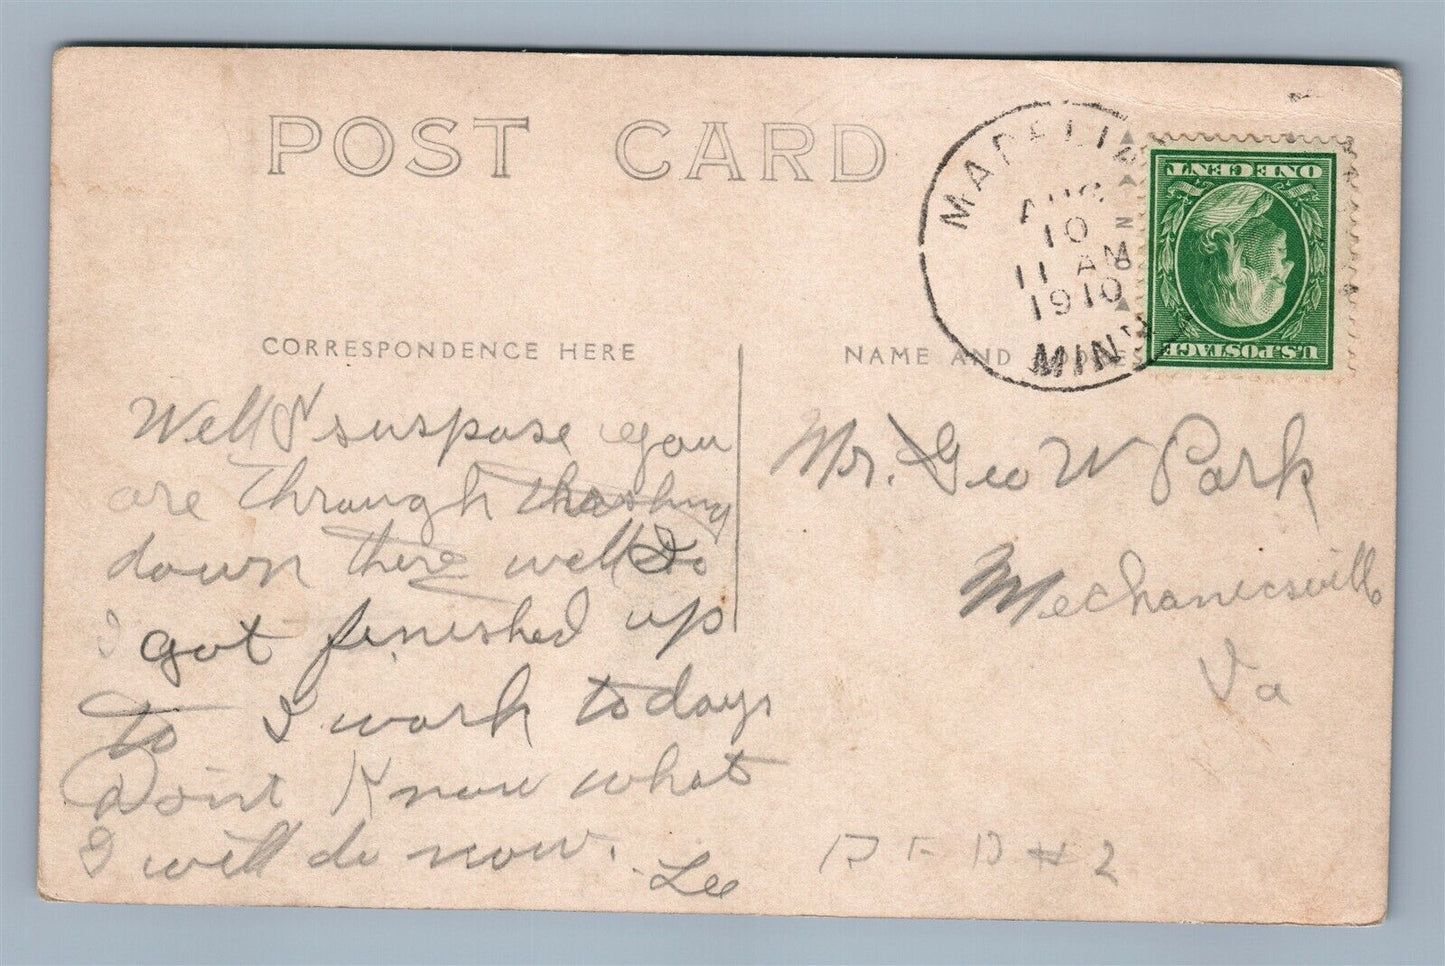 POST CARD
MADELIA
AUG
10
11 AM
1910
MINN
ONE CENT
U.S. POSTAGE
CORRESPONDENCE HERE
NAME AND ADDRESS
Well I suspose you
are through thrashing
down there well
I got finished up
to I work to days
Don't Know what
I will do now.
Lee
Mr. Geo W Park
Mechanicsville
Va
R F D # 2